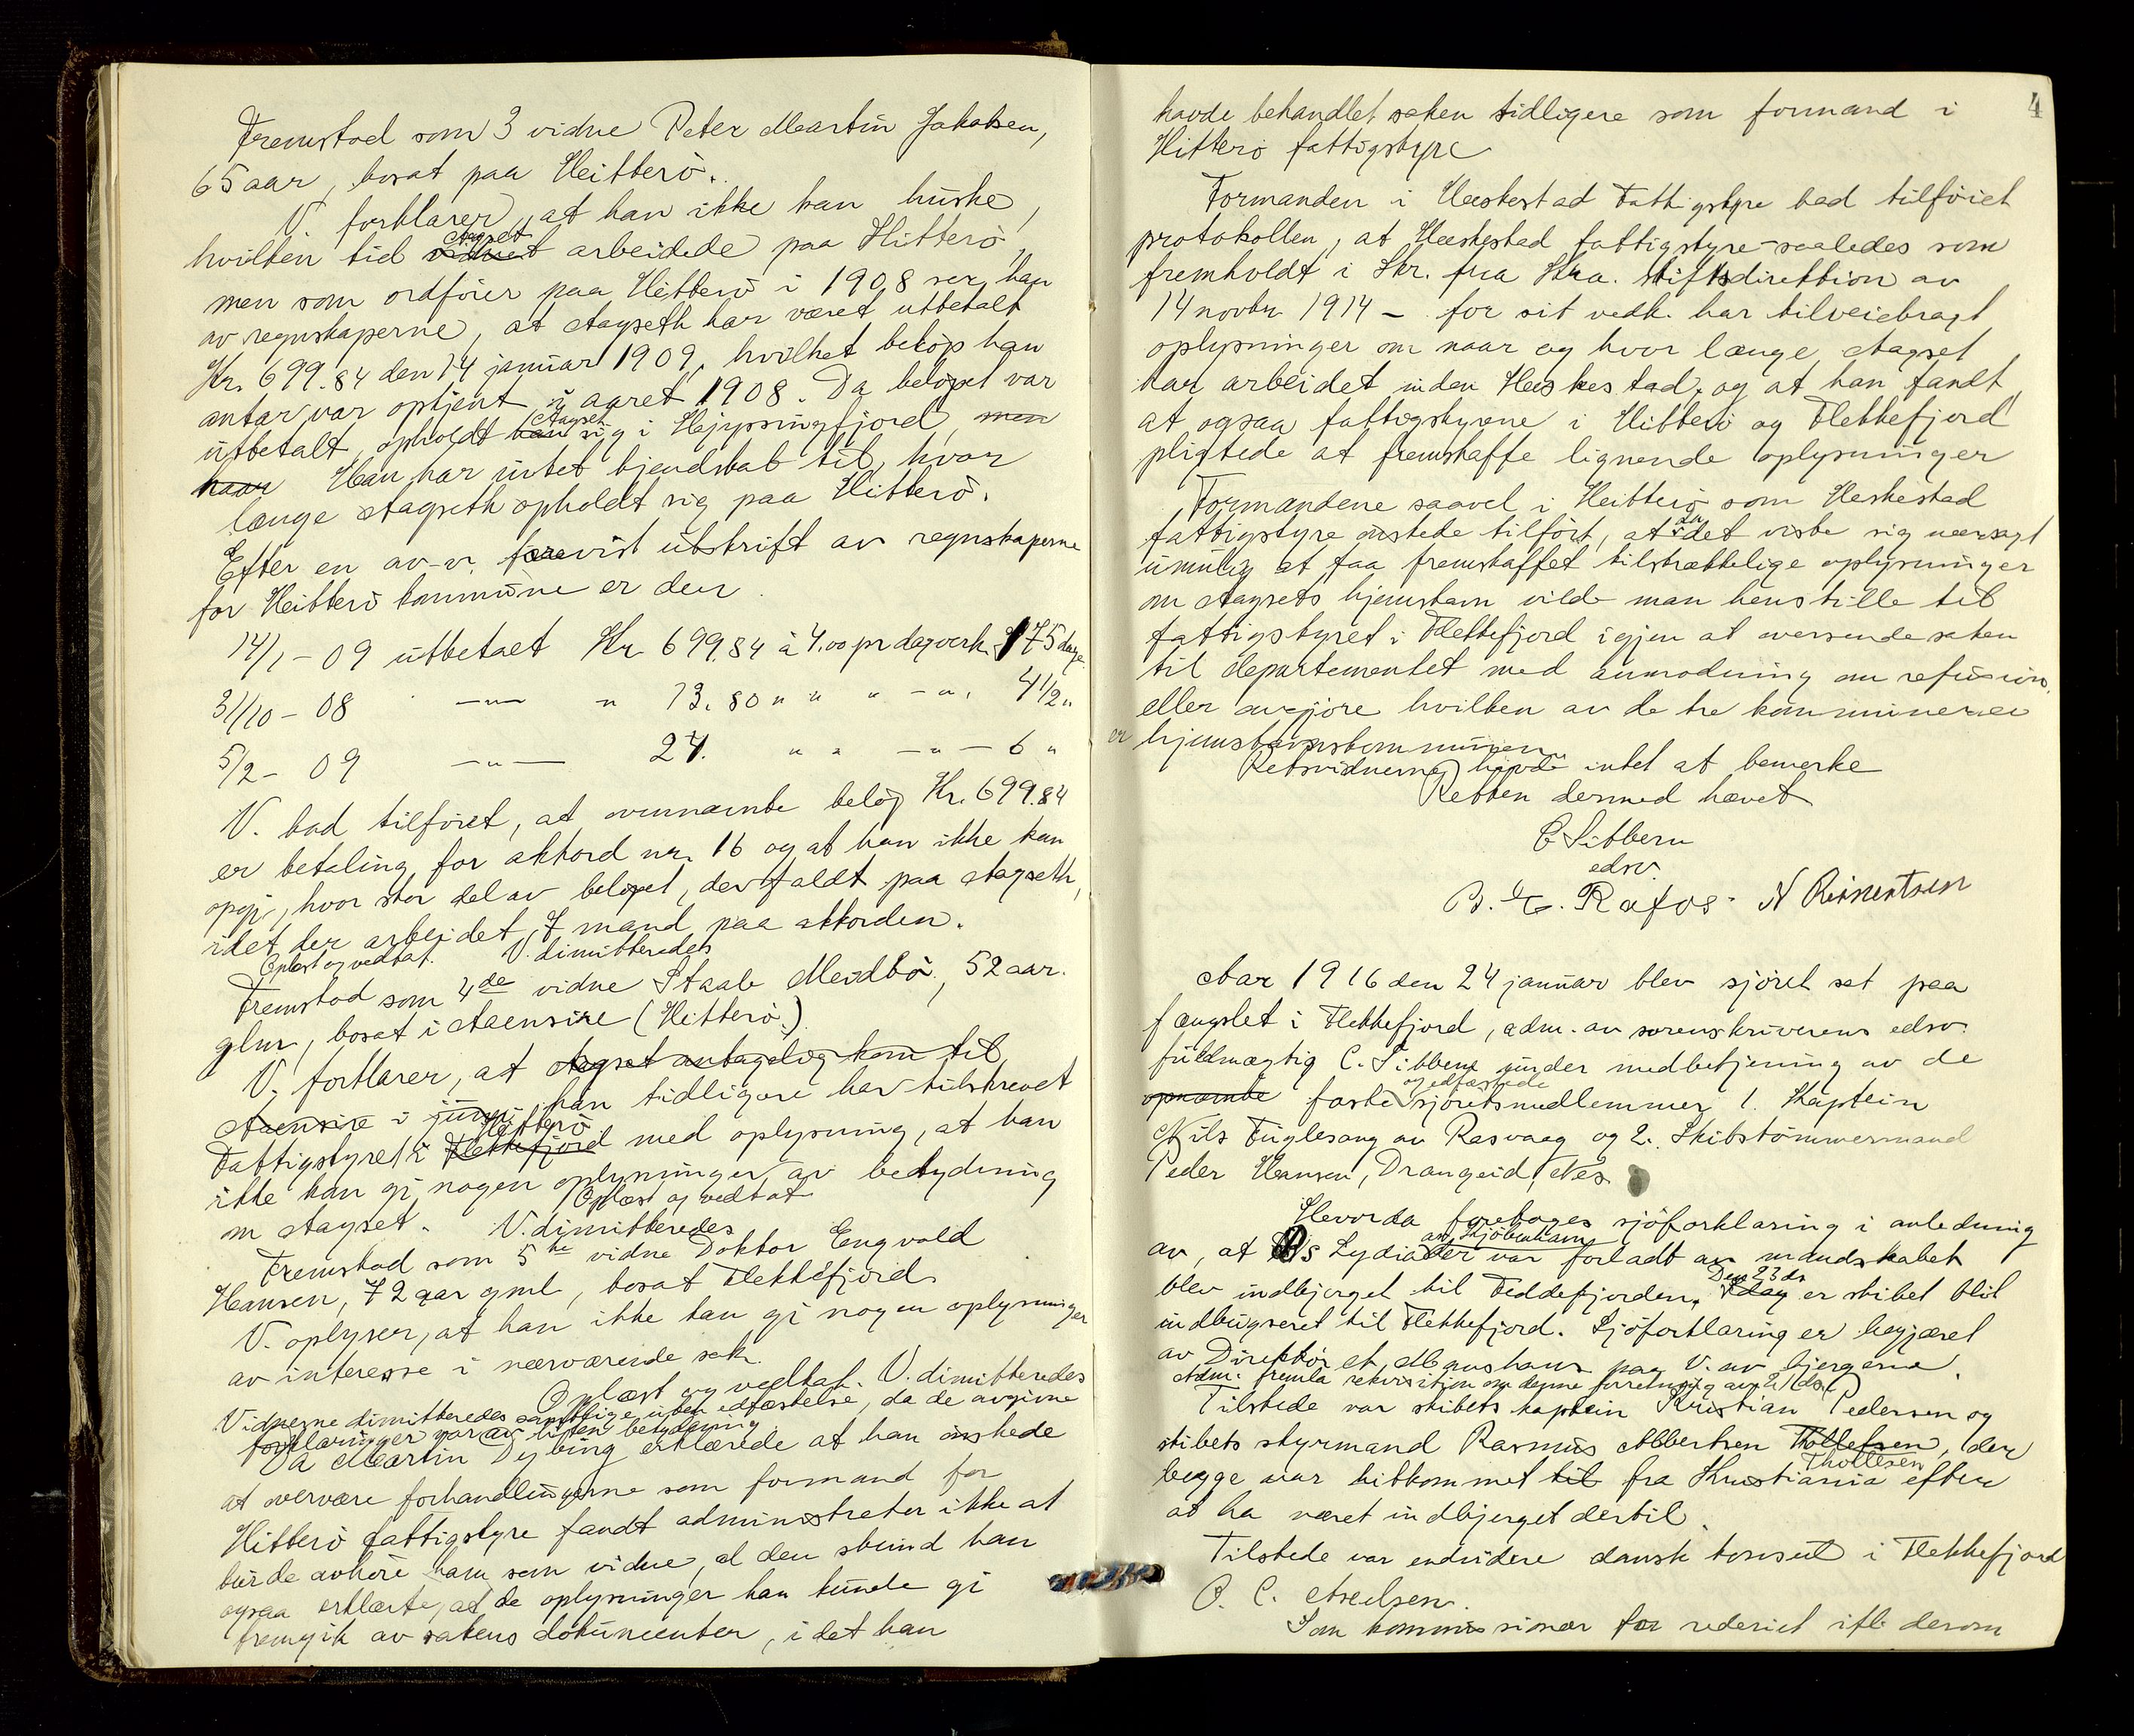 Fremstod som 3 vidne Peter Martin Jakobsen,
65 aar, bosat paa Hitterö.
V. forklarer, at han ikke kan huske,
hvilken tid Aagset arbeidede paa Hitterö,
men som ordförer paa Hitterö i 1908 ser han
av regnskaperne, at Aagseth har været utbetalt
Kr. 699.84 den 14 januar 1909, hvilket belöp han
antar var optjent i aaret 1908. Da belöpet var
utbetalt, opholdt Aagset sig i Jøssingfjord men
naar Han har intet kjendskab til, hvor
længe Aagseth opholdt sig paa Hitterö.
Efter en av v. forevist utskrift av regnskaperne
for Hitterö kommune er der
14/1 - 09 utbetalt Kr 699.84 à 4.00 pr dagverk 175 dage
31/10 - 08 -"- " 13.80 " " " -"- 4 1/2 "
5/2 - 09 -"- 24. " " -"- 6 "
V. bad tilföret, at ovennævnte belöp Kr. 699.84
er betaling for akkord nr. 16 og at han ikke kan
opgi, hvor stor del av belöpet, der faldt paa Aagseth,
idet der arbeidet 7 mand paa akkorden.
Oplæst og vedtat. V. dimitteredes
Fremstod som 4de vidne Staale Meidbö, 52 aar
glm, bosat i Aaensire (Hitterö).
V. forklarer, at Aagset antagelig kom til
Aaensire i juni han tidligere har tilskrevet
Fattigstyret i Flekkefjord Hitterö med oplysning, at han
ikke kan gi nogen oplysninger av betydning
om Aagset. Oplæst og vedtat
V. dimitteredes
Fremstod som 5te vidne Doktor Engvald
Hansen, 72 aar gml, bosat Flekkefjord
V. oplyser, at han ikke kan gi nogen oplysninger
av interesse i nærværende sak.
Oplæst og vedtat. V. dimitteredes
Vidnerne dimitteredes samtlige uten edfæstelse, da de avgivne
forklaringer var av liten betydning
Da Martin Dybing erklærede at han önskede
at overvære forhandlingerne som formand for
Hitterö fattigstyre fandt administrator ikke at
burde avhöre ham som vidne, al den stund han
ogsaa erklærte, at de oplysninger han kunde gi
fremgik av sakens dokumenter, idet han
4
havde behandlet saken tidligere som formand i
Hitterö fattigstyre
Formanden i Heskestad Fattigstyre bad tilföiet
protokollen, at Heskestad fattigstyre - saaledes som
fremholdt i Skr. fra Kra. stiftsdirektion av
14 novbr 1914 - for sit vedk. har tilveiebragt
oplysninger om naar og hvor længe Aagset
har arbeidet inden Heskestad, og at han fandt,
at ogsaa fattigstyrene i Hitterö og Flekkefjord
pligtede at fremskaffe lignende oplysninger
Formandene saavel i Hitterö som Heskestad
fattigstyre önskede tilfört, at da det viste sig næsagt
umulig at faa fremskaffet tilstrækkelige oplysninger
om Aagsets hjemstavn vilde man henstille til
fattigstyret i Flekkefjord igjen at oversende saken
til departementet med anmodning om refusion,
eller avgjöre hvilken av de tre kommuner
er hjemstavnskommunen.
Retsvidnerne havde intet at bemerke
Retten dermed hævet
C Sibbern
edsv.
N Reinertsen
Aar 1916 den 24 januar blev sjöret sat paa
fængslet i Flekkefjord, adm. av sorenskriverens edsv.
fuldmægtig C. Sibbern under medbetjening av de
opnævnte faste og edfæstede sjöretsmedlemmer 1. Kaptein
Nils Fuglesang av Rasvaag og 2. Skibstömmermand
Peder Hansen, Drangeid, Nes
Hvorda foretages sjöforklaring i anledning
av, at Ds Lydia av Kjöbenhavn der var forladt av mandskabet
blev indbjerget til Feddefjorden. Den 23 ds er skibet blit
indbugseret til Flekkefjord. Sjöforklaring er begjæret
av Direktör paa V. av bjergerne
Adm. fremla rekvisition om denne forretning av 21 ds
Tilstede var skibets kaptein Kristian Pedersen og
skibets styrmand Rasmus Albertsen Thollefsen, der
Thollesen
begge var hitkommet til fra Kristiania efter
at ha været indbjerget dertil
Tilstede var endvidere dansk konsul i Flekkefjord
P. C. Axelsen.
Som kommissionær for rederiet ifl. derom